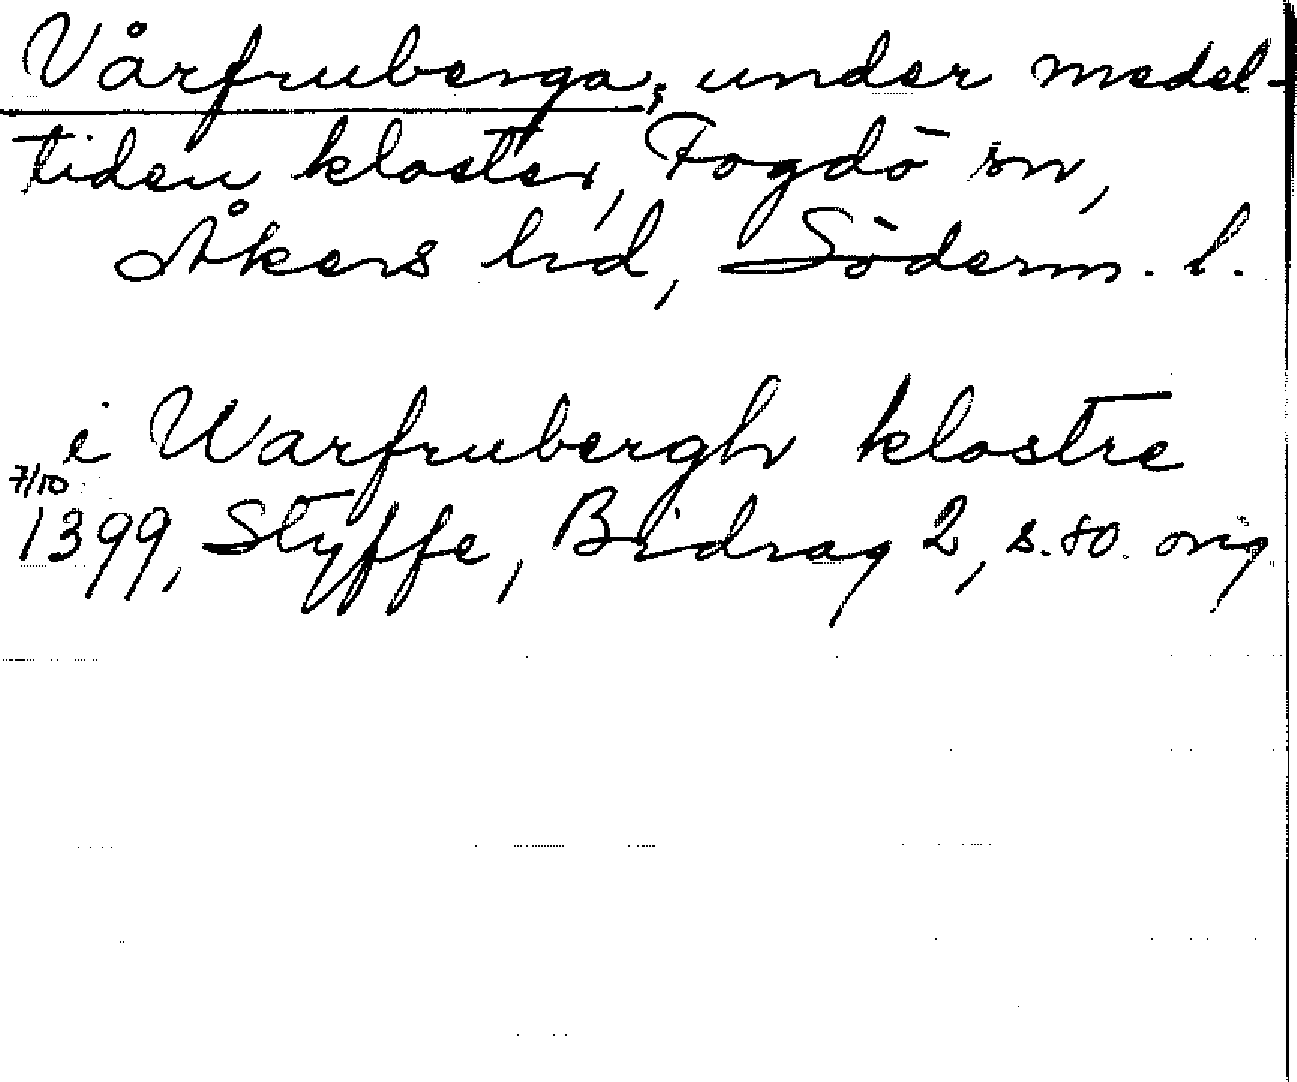 Vårfruberga, under medel-
tiden kloster, Fogdö sn,
Åkers hd, Söderm. l.
i Warfrubergh klostre
7/10
1399, Styffe, Bidrag 2, s. 80. orig